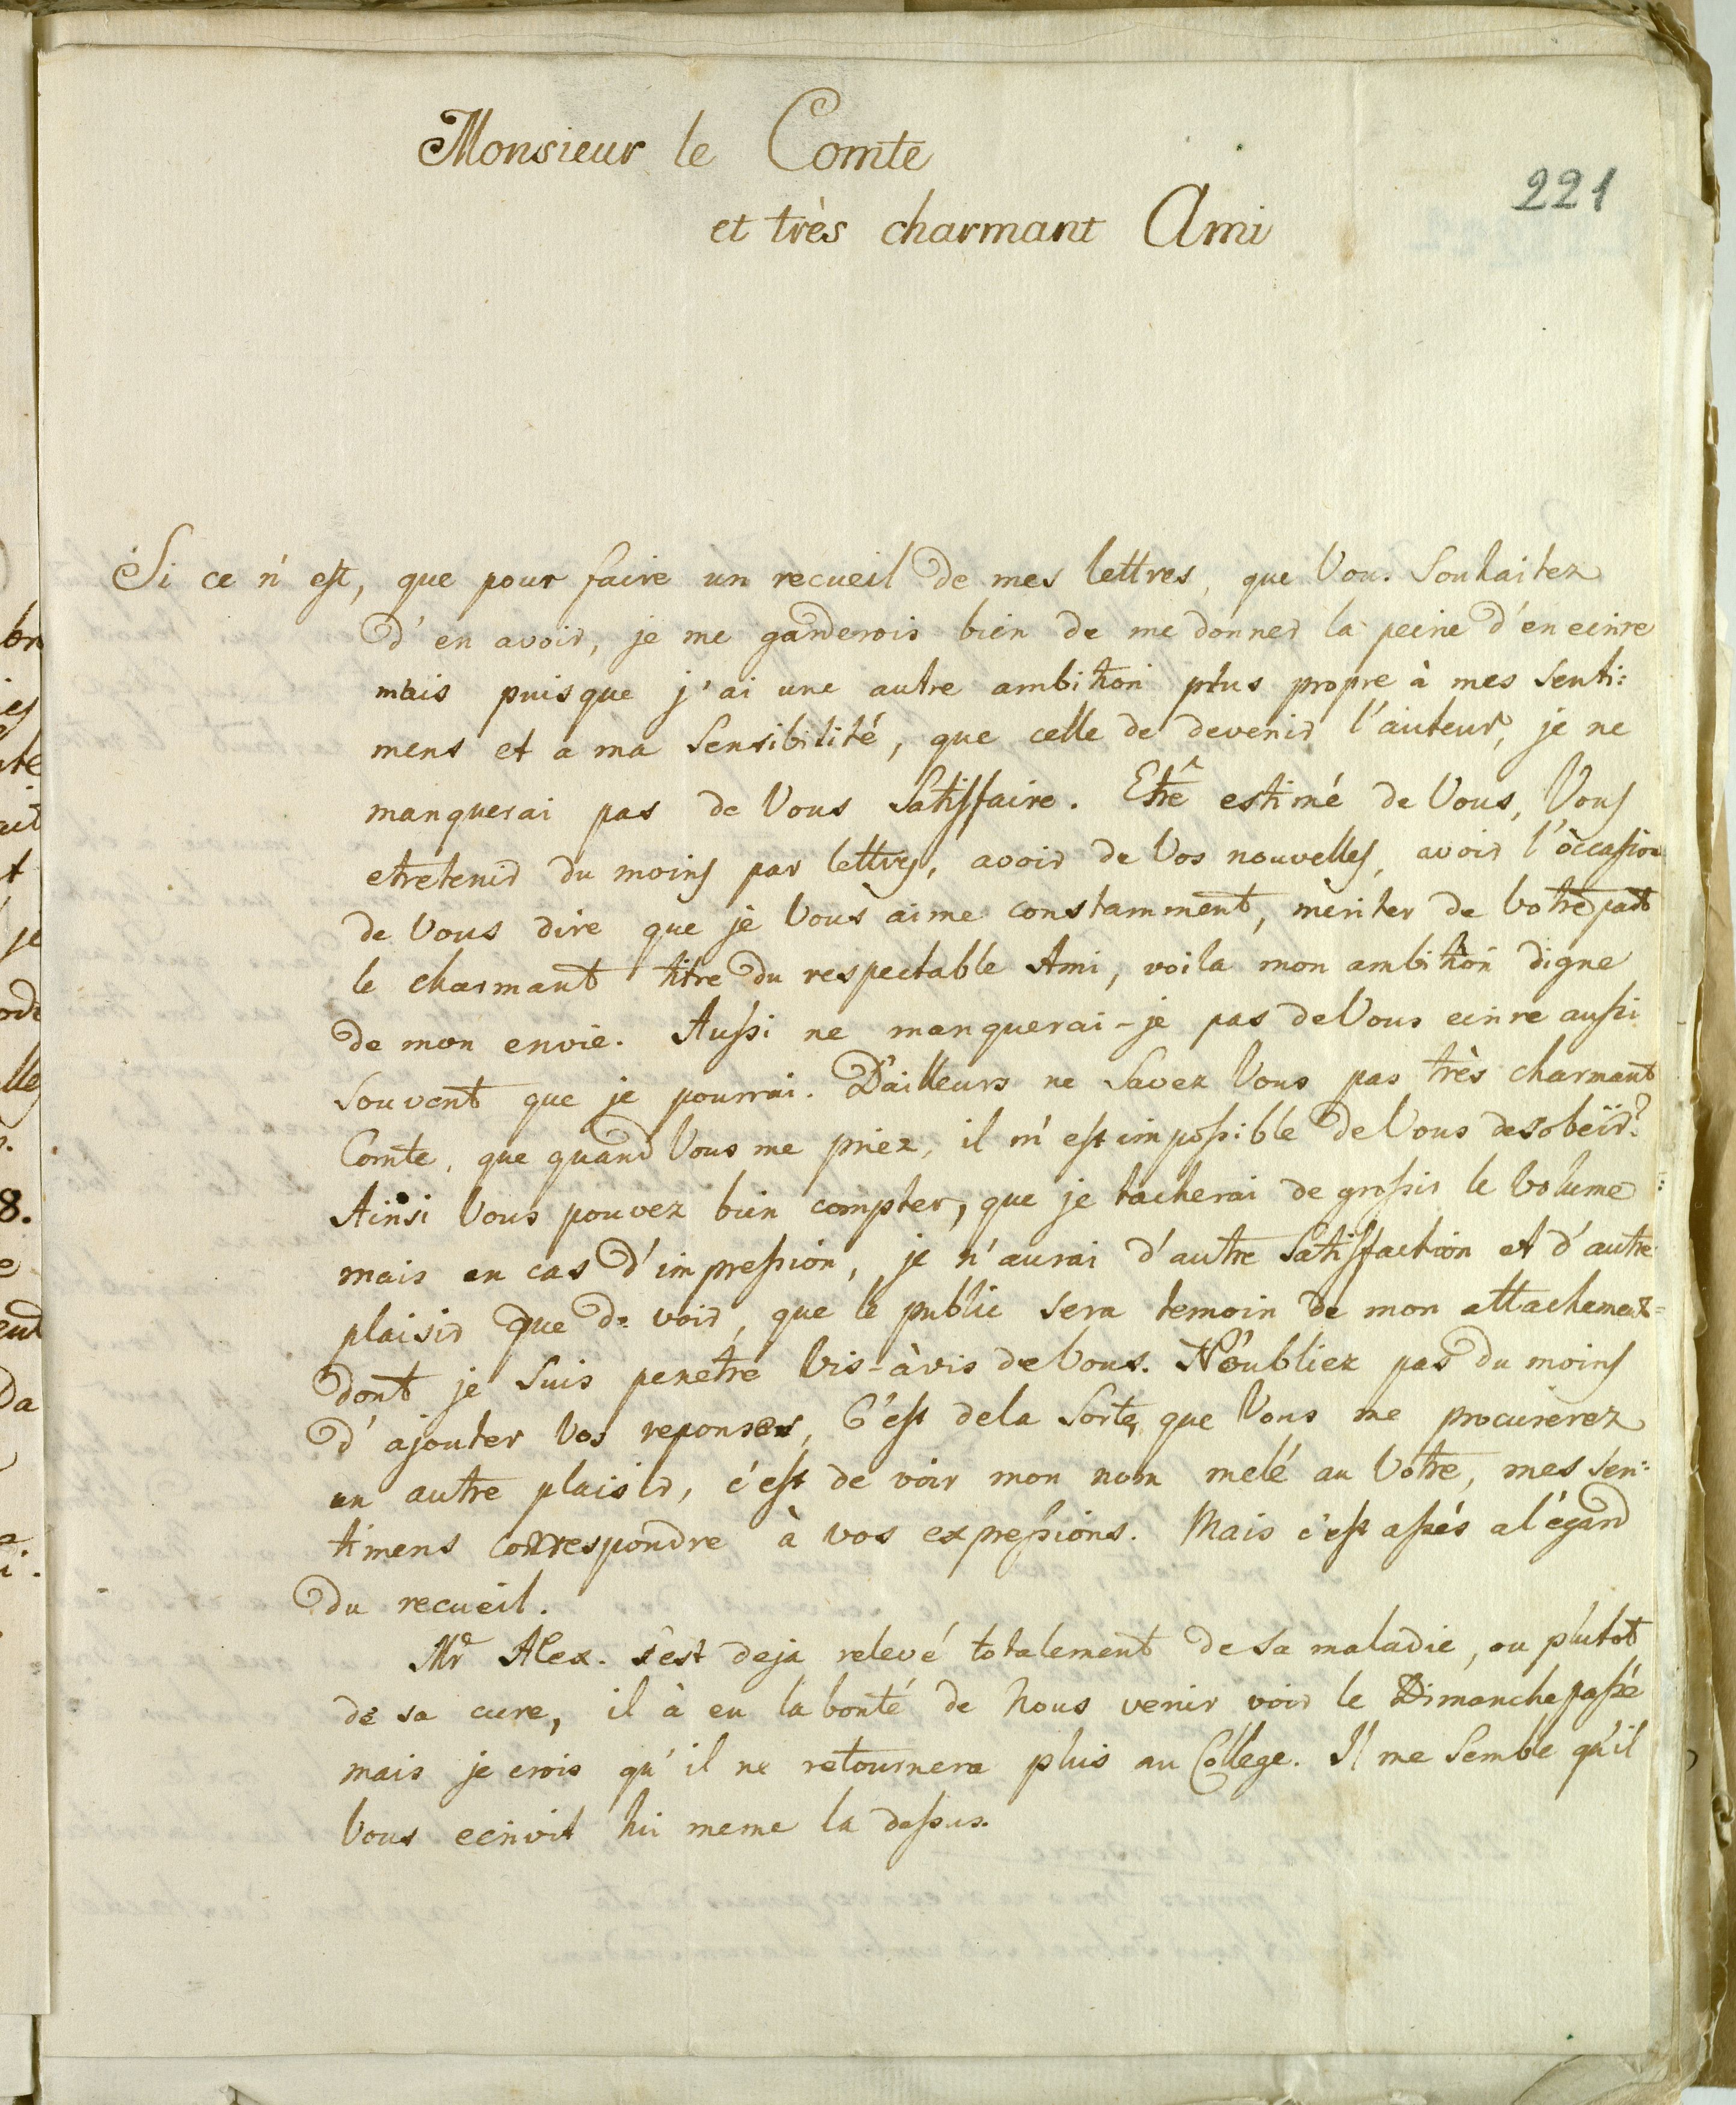 Monsieur le Comte
221
et très charmant Ami
Si ce n'est, que pour faire un recueil de mes lettres, que Vous Souhaitez
d'en avoir, je me garderois bien de me donner la peine d'en ecrire
mais puisque j'ai une autre ambition plus propre à mes senti:
mens et a ma Sensibilité, que celle de devenir l'auteur, je ne
manquerai pas de Vous Satisfaire. Etrê estimé de Vous, Vous
etretenir du moins par lettres, avoir de Vos nouvelles, avoir l'òccasion
de Vous dire que je Vous aime constamment, mèriter de Votre part
le charmant titre du respectable Ami, voila mon ambition digne
de mon envie. Aussi ne manquerai-je pas de Vous ecrire aussi
souvent que je pourrai. D'ailleurs ne Savez Vous pas très charmant
Comte, que quand Vous me priez, il m'est impossible de Vous desobeïr?
Ainsi Vous pouvez bien compter, que je tacherai de grossir le Volume:
mais en cas d'impression, je n'aurai d'autre Satisfaction et d'autre
plaisir que de voir, que le public sera temoin de mon attachement=
dont je suis penetré Vis-àvis de Vous. N'oubliez pas du moins
d'ajouter Vos reponses, C'est dela Sorte, que Vous me procurerez
un autre plaisir, c'est de voir mon nom melé au Votre, mes sen:
timens correspondre à vos expressions. Mais c'est assés a l'égard
du recueil.
Mr Alex. s'est deja relevé totalement de sa maladie, ou plutot
de sa cure, il à eu la bonté de Nous venir voir le Dimanche passé
mais je crois qu'il ne retournera plus au College. Il me Semble qu'il
Vous ecrivit lui meme la dessus.